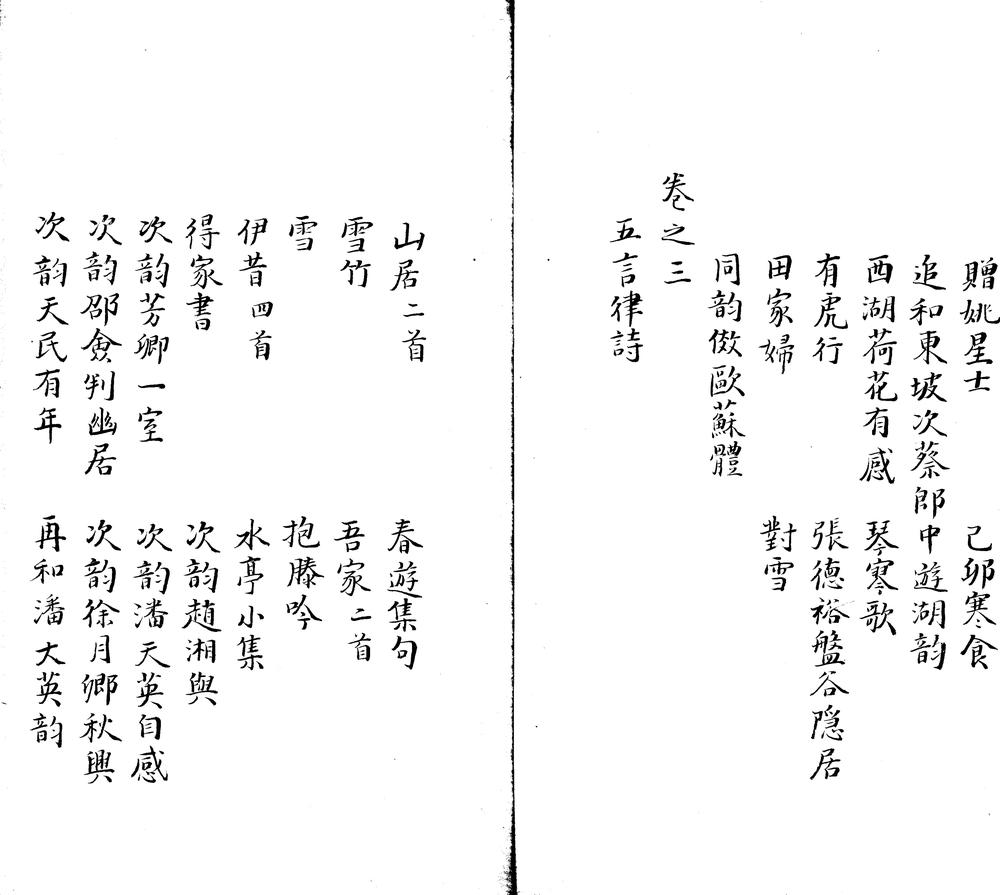 贈姚星士　己卯寒食
追和東坡次蔡郎中遊湖韵
西湖荷花有感　琴寒歌
有虎行　張德裕盤谷隱居
田家婦　對雪
同韵傚歐蘇體
卷之三
五言律詩
山居二首　春遊集句
雪竹　吾家二首
雪　抱膝吟
伊昔四首　水亭小集
得家書　次韵趙湘與
次韵芳卿一室　次韵潘天英自感
次韵邵僉判幽居　次韵徐月卿秋興
次韵天民有年　再和潘大英韵